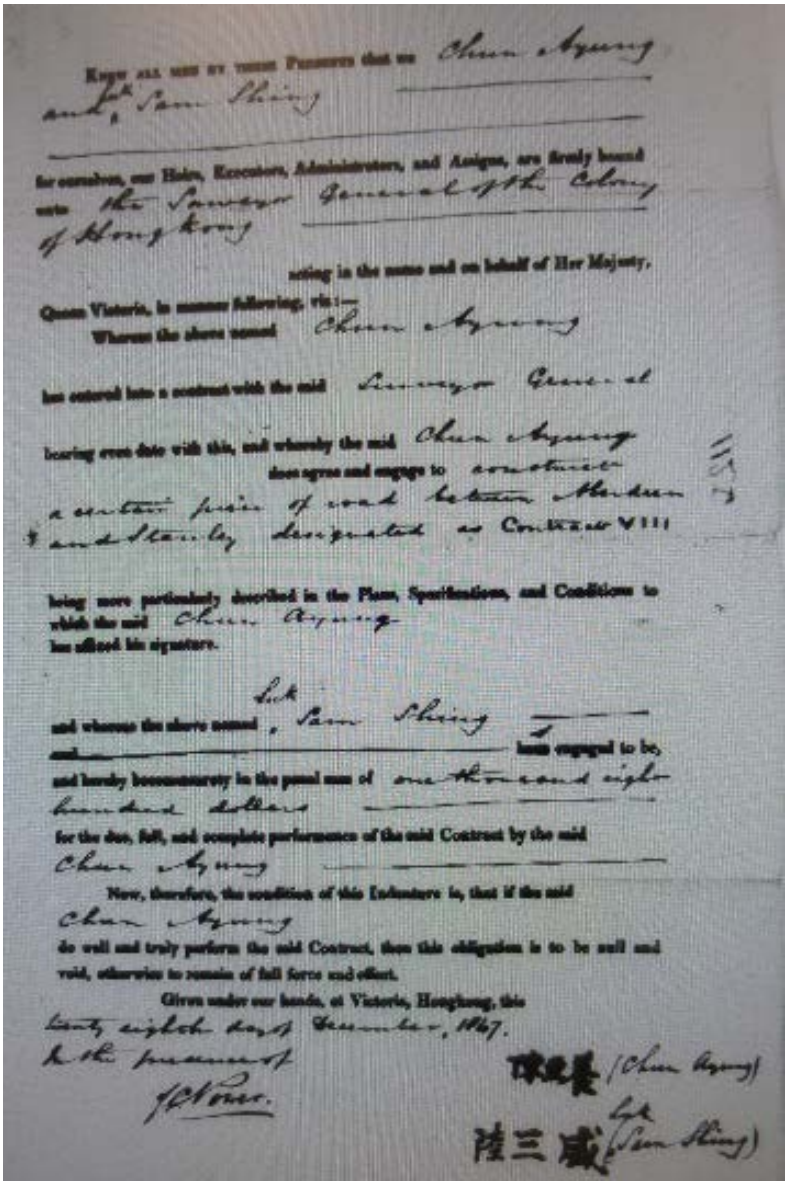 Know all men by these Presents that we Chun Ayung
Luk
and, Sam Shing
for ourselves, our Heirs, Executors, Administrators, and Assigns, are firmly bound
unto the Surveyor General of the Colony
of Hongkong
acting in the name and on behalf of Her Majesty,
Queen Victoria, in manner following, viz:—
Whereas the above named Chun Ayung
has entered into a contract with the said Surveyor General
bearing even date with this, and whereby the said Chun Ayung
does agree and engage to construct
a certain piece of road between Aberdeen
and Stanley designated as Contract VIII
being more particularly described in the Plans, Specifications, and Conditions to
which the said Chun Ayung
has affixed his signature.
Luk
and whereas the above named, Sam Shing
and engaged to be,
and hereby become surety in the penal sum of one thousand eight
hundred dollars
for the due, full, and complete performance of the said Contract by the said
Chun Ayung
Now, therefore, the condition of this Indenture is, that if the said
Chun Ayung
do well and truly perform the said Contract, then this obligation is to be null and
void, otherwise to remain of full force and effect.
Given under our hands, at Victoria, Hongkong, this
twenty eighth day of December, 1847.
In the presence of
陳 養 (Chun Ayung)
Luk
陸三盛 (Sam Shing)